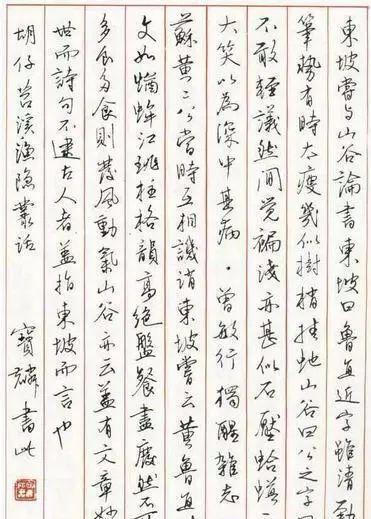 東坡嘗与山谷論書東坡曰魯直近字雖清勁
筆勢有時太瘦幾似樹梢挂蛇山谷曰公之字
不敢輕議然間覺褊淺亦甚似石壓蛤蟆二
大笑以為深中其病。曾敏行獨醒雜志
蘇黃二公當時互相譏誚東坡嘗云黃魯直
文如蝤蛑江珧柱格韻高絕盤餐盡廢然不
多食多食則發風動氣山谷亦云蓋有文章妙
世而詩句不逮古人者蓋指東坡而言也
胡仔苕溪漁隱叢話 寶璘書此